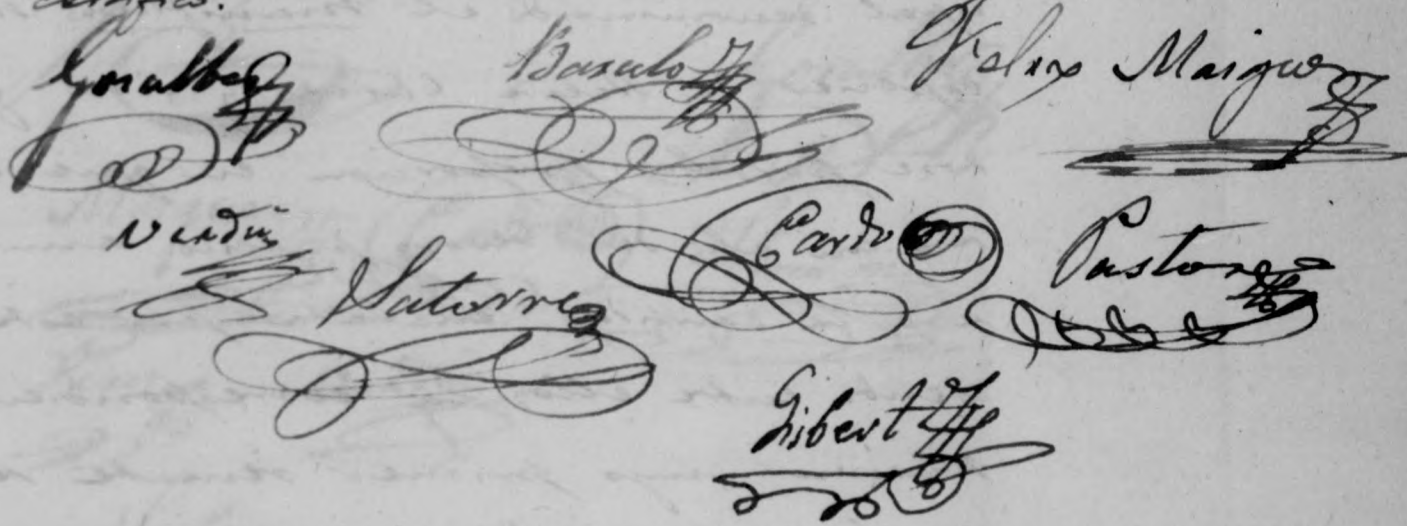 certifico.
Goralbes Barulo Felix Maiques
Verdú Satorre Cardo Pastor
Gisbert